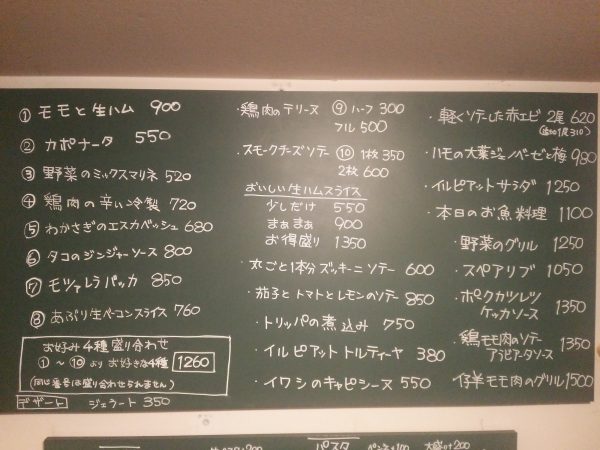 ① モモと生ハム 900
② カポナータ 550
③ 野菜のミックスマリネ 520
④ 鶏肉の辛い冷製 720
⑤ わかさぎのエスカベッシュ 680
⑥ タコのジンジャーソース 800
⑦ モツァレラパッカ 850
⑧ あぶり生ベーコンスライス 760
お好み4種盛り合わせ
①〜⑩よりお好きな4種 1260
(同じ番号は盛り合わせられません)
デザート ジェラート 350
・鶏肉のテリーヌ ⑨ ハーフ 300
フル 500
・スモークチーズソテー ⑩ 1枚 350
2枚 600
おいしい生ハムスライス
少しだけ 550
まぁまぁ 900
お得盛り 1350
・丸ごと1本分ズッキーニソテー 600
・茄子とトマトとレモンのソテー 850
・トリッパの煮込み 750
・イルピアットトルティーヤ 380
・イワシのキャピシーヌ 550
・軽くソテーした赤エビ 2尾 620
(追加1尾310)
・ハモの大葉ジェノバーゼと梅 980
・イルピアットサラダ 1250
・本日のお魚料理 1100
・野菜のグリル 1250
・スペアリブ 1050
・ポークカツレツ
ケッカソース 1350
・鶏モモ肉のソテー
アラビアータソース 1350
・仔羊モモ肉のグリル 1500
パスタ
大盛り 200